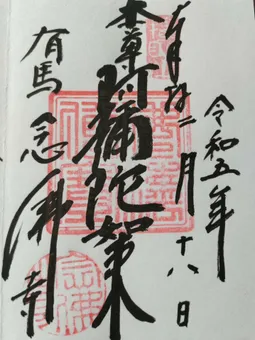 令和五年
奉拝二月十八日
本尊阿彌陀如来
有馬念佛寺